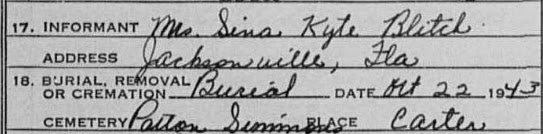 17. INFORMANT Mrs. Sina Kyte Blitch
ADDRESS Jacksonville, Fla
18. BURIAL, REMOVAL
OR CREMATION Burial DATE Oct 22 1943
CEMETERY Patton Simmons PLACE Carter